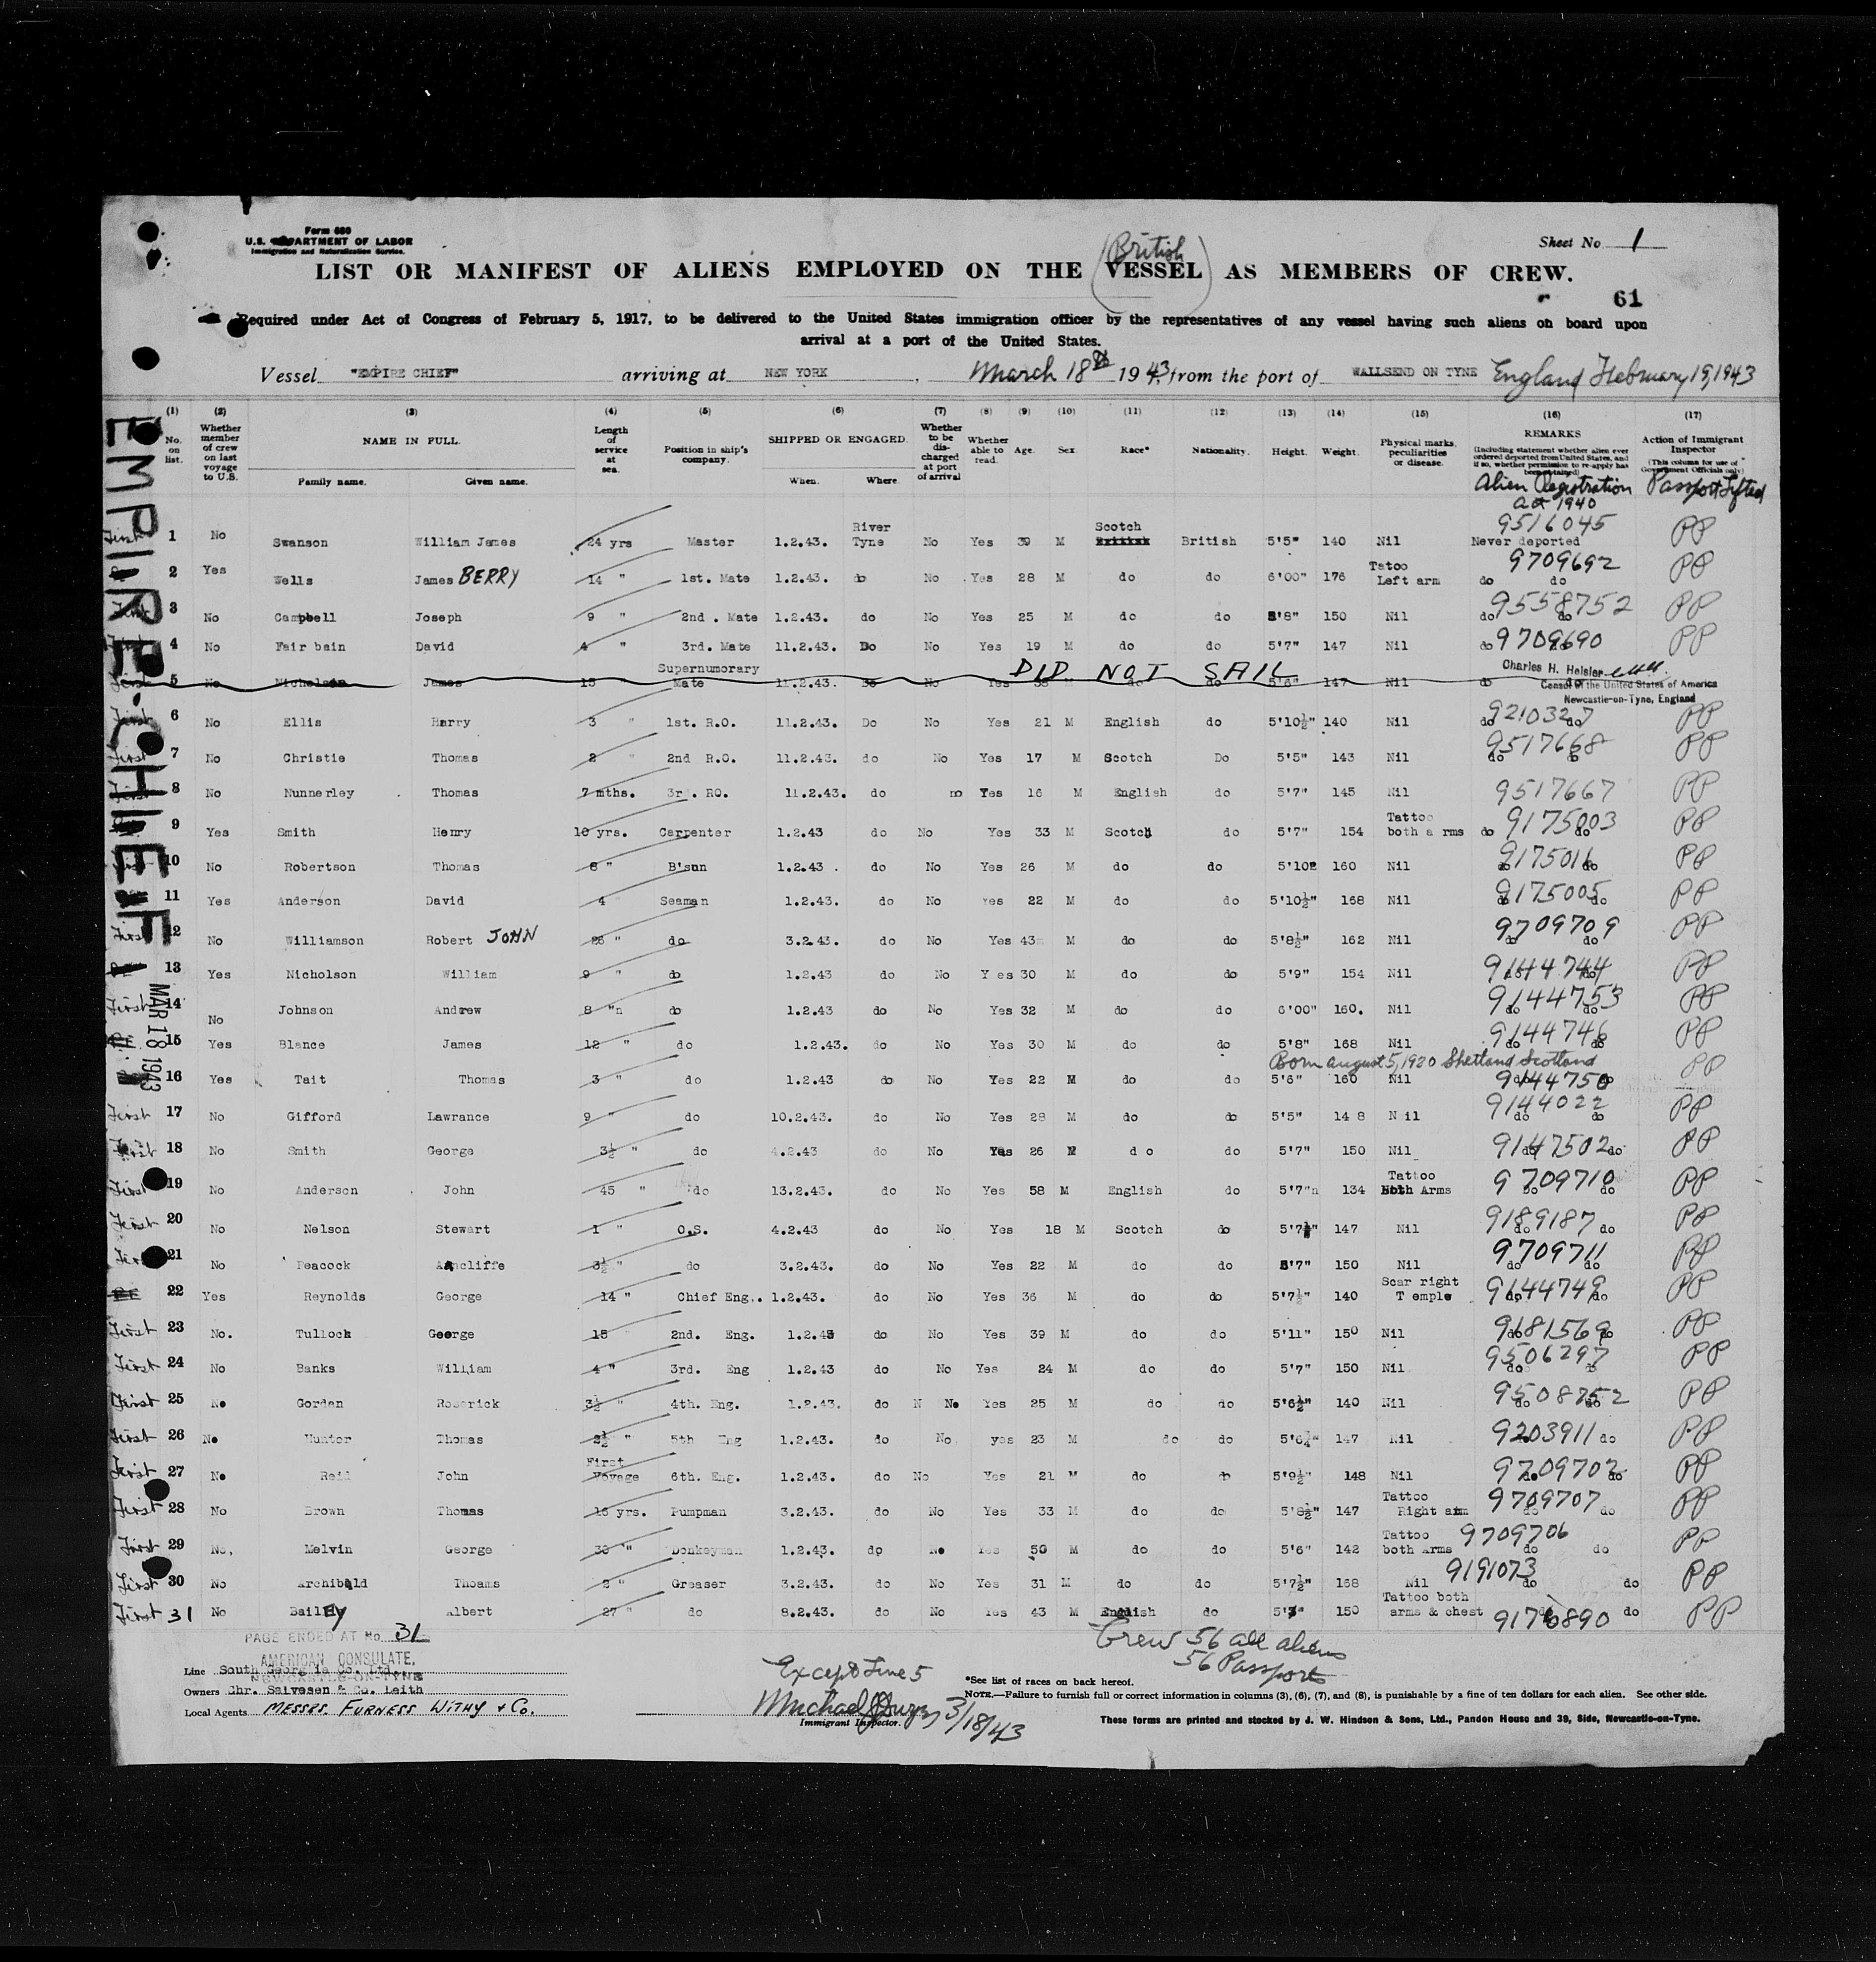 Form 680
U.S. DEPARTMENT OF LABOR
Immigration and Naturalization Service.
Sheet No 1
LIST OR MANIFEST OF ALIENS EMPLOYED ON THE (British VESSEL) AS MEMBERS OF CREW.
61
Required under Act of Congress of February 5, 1917, to be delivered to the United States immigration officer by the representatives of any vessel having such aliens on board upon
arrival at a port of the United States.
Vessel "EMPIRE CHIEF" arriving at NEW YORK, March 18th 1943, from the port of WALLSEND ON TYNE England February 19, 1943
(1) (2) (3) (4) (5) (6) (7) (8) (9) (10) (11) (12) (13) (14) (15) (16) (17)
No. on list. Whether member of crew on last voyage to U.S. NAME IN FULL. Family name. Given name. Length of service at sea. Position in ship's company. SHIPPED OR ENGAGED. When. Where. Whether to be discharged at port of arrival Whether able to read. Age. Sex. Race* Nationality. Height. Weight. Physical marks, peculiarities or disease. REMARKS (Including statement whether alien ever ordered deported from United States, and if so, whether permission to re-apply has been obtained) Action of Immigrant Inspector (This column for use of Government Officials only)
Alien Registration Act 1940 Passport Lifted
EMPIRE CHIEF
MAR 18 1943
First 1 No Swanson William James 24 yrs Master 1.2.43. River Tyne No Yes 39 M Scotch British 5'5" 140 Nil 9516045 Never deported PP
2 Yes Wells James BERRY 14 " 1st. Mate 1.2.43. do No Yes 28 M do do 6'00" 176 Tatoo Left arm 9709692 do do PP
First 3 No Campbell Joseph 9 " 2nd . Mate 1.2.43. do No Yes 25 M do do 5'8" 150 Nil 9558752 do do PP
First 4 No Fair bain David 4 " 3rd. Mate 11.2.43. Do No Yes 19 M do do 5'7" 147 Nil do 9709690 PP
First 5 No Nicholson James 15 " Supernumorary Mate 11.2.43. Do No Yes 38 DID NOT SAIL do do 5'6" 147 Nil do do
Charles H. Heisler
Consul of the United States of America
Newcastle-on-Tyne, England
First 6 No Ellis Harry 3 " 1st. R.O. 11.2.43. Do No Yes 21 M English do 5'10½" 140 Nil 9210327 do do PP
First 7 No Christie Thomas 2 " 2nd R.O. 11.2.43. do No Yes 17 M Scotch Do 5'5" 143 Nil 9517668 do do PP
First 8 No Nunnerley Thomas 7 mths. 3rd. RO. 11.2.43. do no Yes 16 M English do 5'7" 145 Nil 9517667 PP
9 Yes Smith Henry 10 yrs. Carpenter 1.2.43 do No Yes 33 M Scotch do 5'7" 154 Tattoo both a rms do 9175003 do PP
10 No Robertson Thomas 8 " B'sun 1.2.43 . do No Yes 26 M do do 5'10 160 Nil 9175016 do do PP
11 Yes Anderson David 4 " Seaman 1.2.43. do No Yes 22 M do do 5'10½" 168 Nil 9175005 do do PP
First 12 No Williamson Robert JOHN 26 " do 3.2.43. do No Yes 43 M do do 5'8½" 162 Nil 9709709 do do PP
13 Yes Nicholson William 9 " do 1.2.43 do No Y es 30 M do do 5'9" 154 Nil 9144744 do do PP
First 14 No Johnson Andrew 8 "n do 1.2.43 do No Yes 32 M do do 6'00" 160. Nil 9144753 do do PP
15 Yes Blance James 12 " do 1.2.43. do No Yes 30 M do do 5'8" 168 Nil 9144746 do do PP
Born August 5, 1920 Shetland Scotland
16 Yes Tait Thomas 3 " do 1.2.43 do No Yes 22 M do do 5'6" 160 Nil 9144750 do do PP
First 17 No Gifford Lawrance 9 " do 10.2.43. do No Yes 28 M do do 5'5" 14 8 N il 9144022 do do PP
First 18 No Smith George 3½ " do 4.2.43 do No Yes 26 M d o do 5'7" 150 Nil 9147502 do do PP
First 19 No Anderson John 45 " do 13.2.43. do No Yes 58 M English do 5'7"n 134 Tattoo Both Arms 9709710 Do do PP
First 20 No Nelson Stewart 1 " O.S. 4.2.43 do No Yes 18 M Scotch do 5'7½" 147 Nil 9189187 do do PP
First 21 No Peacock Ancliffe 3½ " do 3.2.43. do No Yes 22 M do do 5'7" 150 Nil 9709711 do do PP
22 Yes Reynolds George 14 " Chief Eng.. 1.2.43. do No Yes 36 M do do 5'7½" 140 Scar right T emple 9144749 do do PP
First 23 No. Tulloch George 15 " 2nd. Eng. 1.2.43 do No Yes 39 M do do 5'11" 150 Nil 9181569 do do PP
First 24 No Banks William 4 " 3rd. Eng 1.2.43 do No Yes 24 M do do 5'7" 150 Nil 9506297 do do PP
First 25 No Gordon Roderick 3½ " 4th. Eng. 1.2.43. do N No Yes 25 M do do 5'6½" 140 Nil 9508752 do do PP
First 26 No Hunter Thomas 2½ " 5th Eng 1.2.43. do No yes 23 M do do 5'6¼" 147 Nil 9203911 do PP
First 27 No Reil John First Voyage 6th. Eng. 1.2.43. do No Yes 21 M do do 5'9½" 148 Nil 9709702 do do PP
First 28 No Brown Thomas 15 yrs. Pumpman 3.2.43. do No Yes 33 M do do 5'8½" 147 Tattoo Right arm 9709707 do do PP
First 29 No. Melvin George 30 " Donkeyman 1.2.43. do No Yes 50 M do do 5'6" 142 Tattoo both arms 9709706 do do PP
First 30 No Archibald Thoams 2 " Greaser 3.2.43. do No Yes 31 M do do 5'7½" 168 Nil 9191073 do do PP
First 31 No Bailey Albert 27 " do 8.2.43. do No Yes 43 M English do 150 Tattoo both arms & chest 9176890 do do PP
PAGE ENDED AT No. 31
AMERICAN CONSULATE,
NEWCASTLE-ON-TYNE
Crew 56 all aliens
56 Passports
Except Line 5
Line South Georgia Co. Ltd.
Owners Chr. Salvesen & Co. Leith
Local Agents MESSRS. FURNESS WITHY & Co.
Michael 3/18/43
Immigrant Inspector.
*See list of races on back hereof.
NOTE.—Failure to furnish full or correct information in columns (3), (6), (7), and (8), is punishable by a fine of ten dollars for each alien. See other side.
These forms are printed and stocked by J. W. Hindson & Sons, Ltd., Pandon House and 39, Side, Newcastle-on-Tyne.